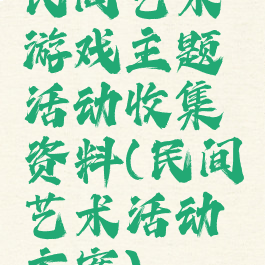 民间艺术
游戏主题
活动收集
资料(民间
艺术活动
方案)